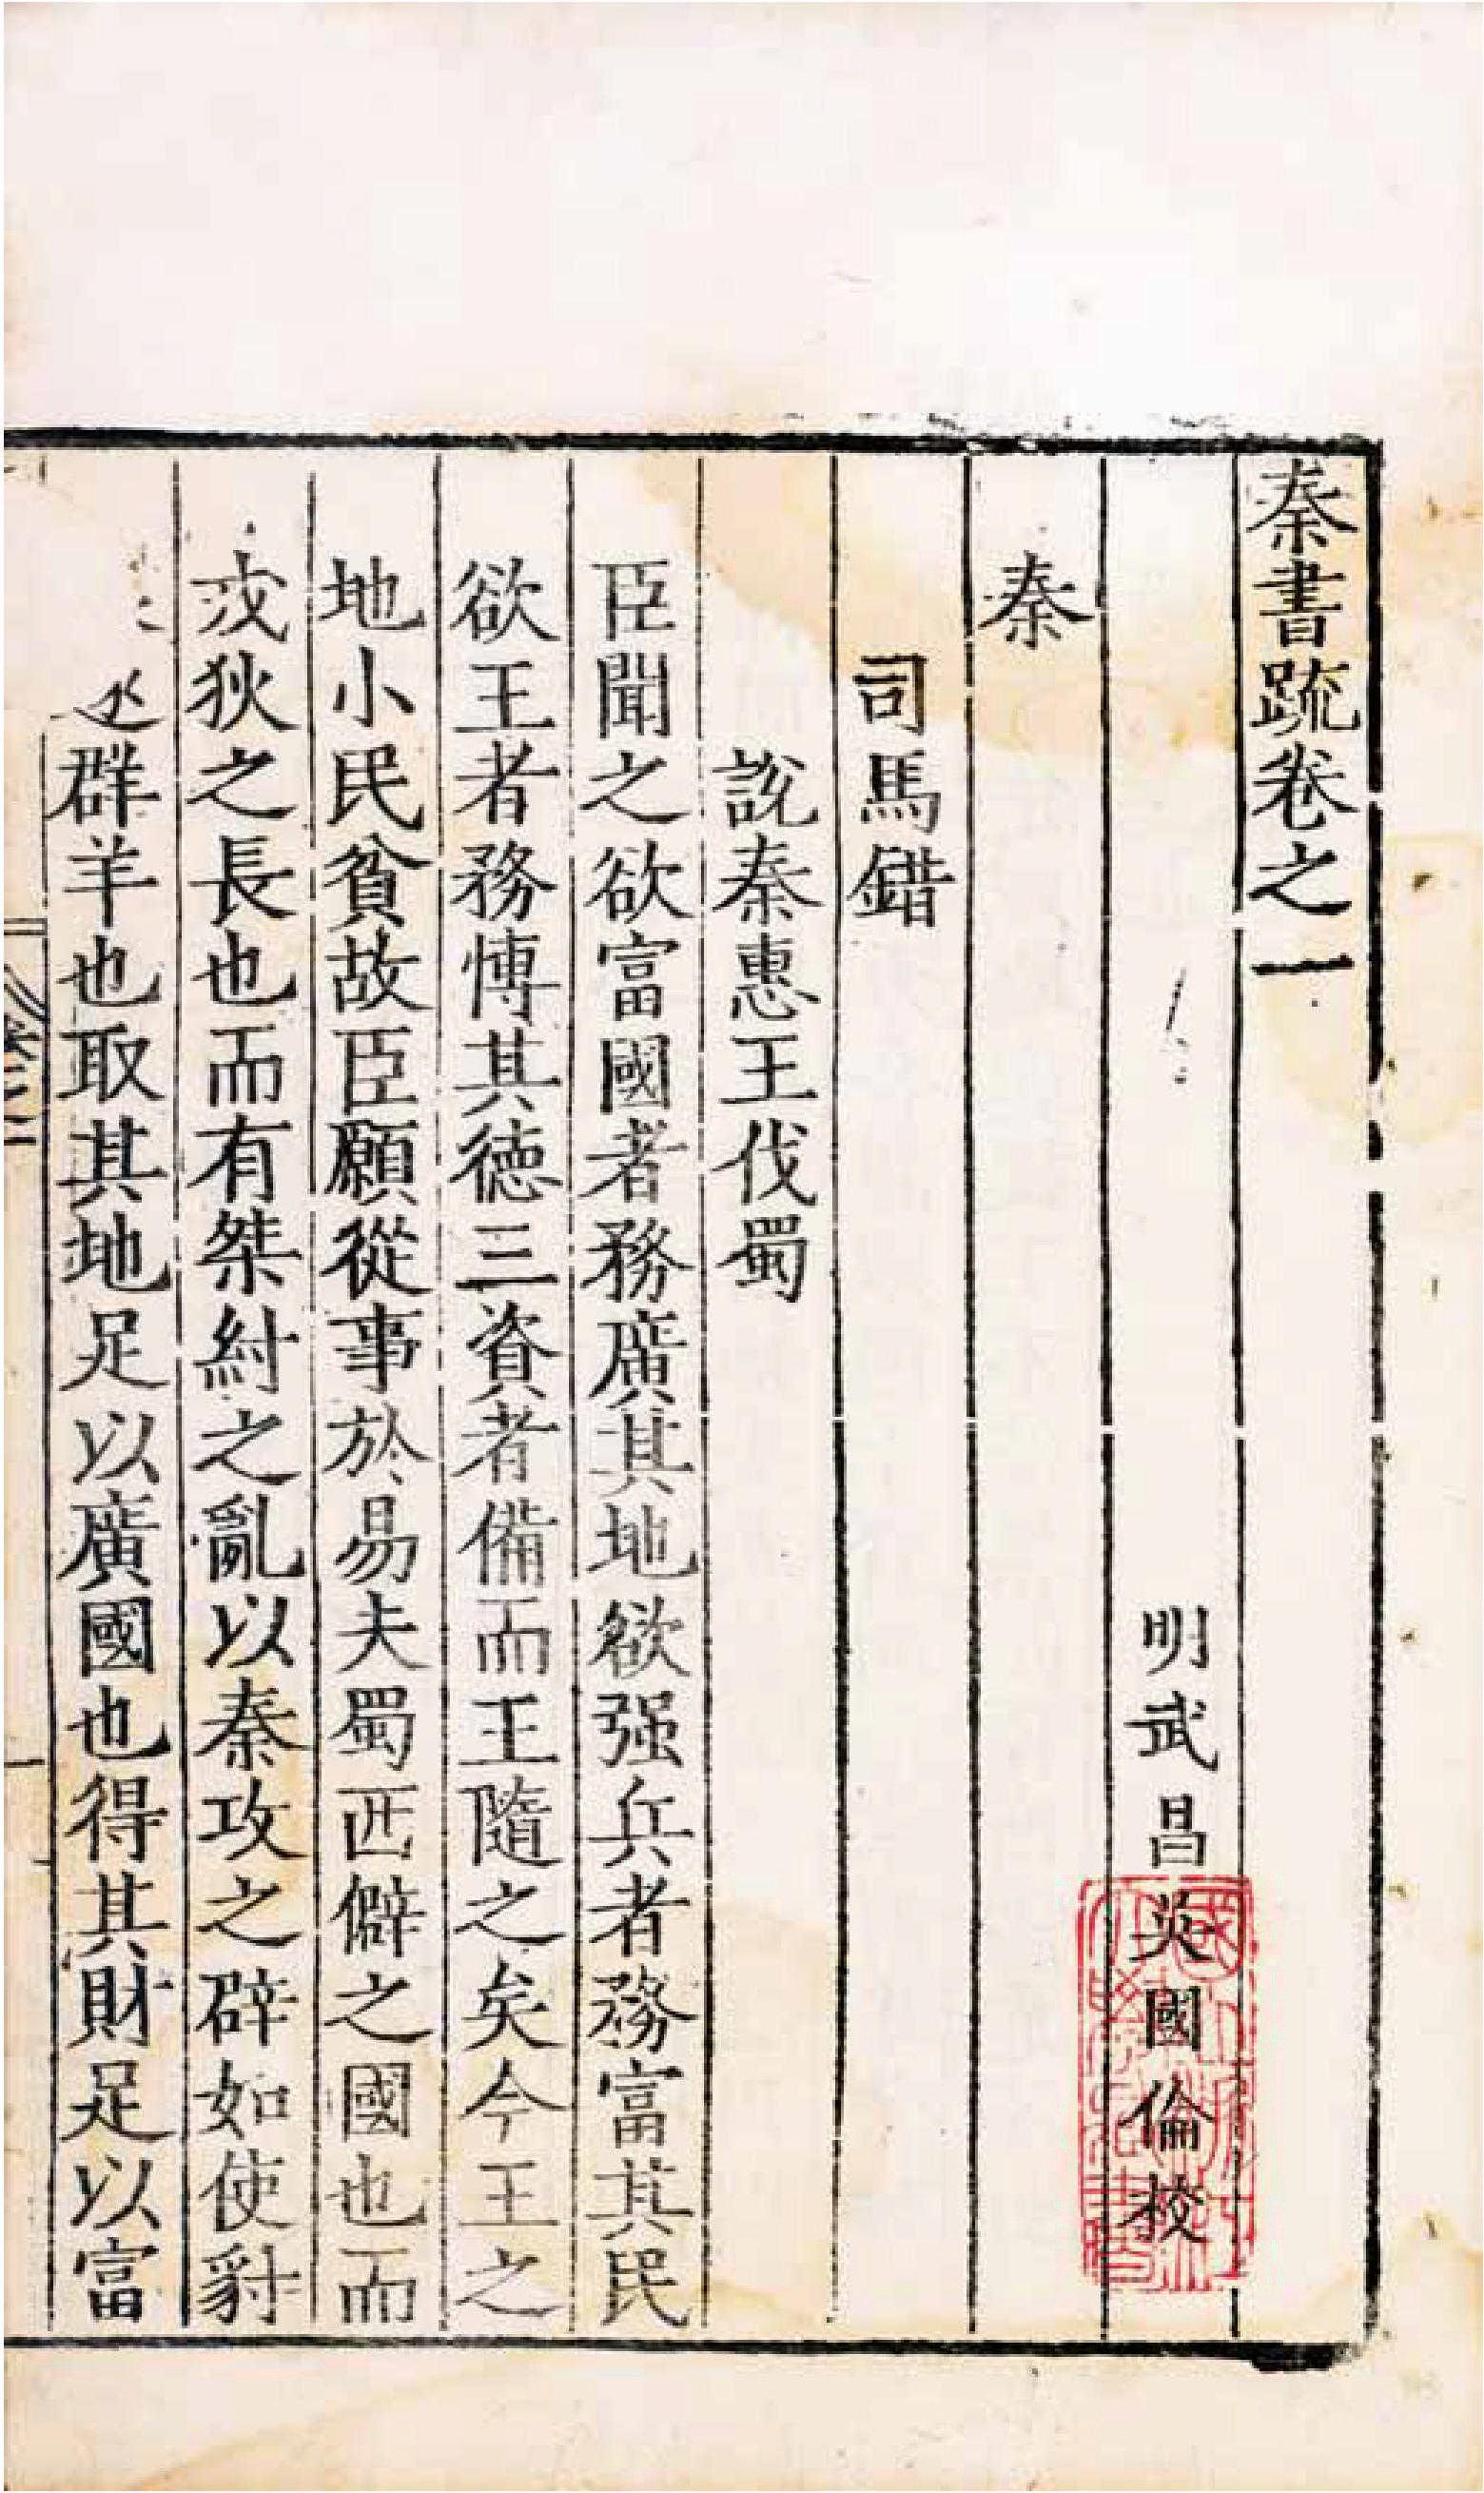 秦書疏卷之一
明武昌吳國倫校
秦
司馬錯
說秦惠王伐蜀
臣聞之欲富國者務廣其地欲强兵者務富其民
欲王者務愽其德三資者備而王隨之矣今王之
地小民貧故臣願從事於易夫蜀西僻之國也而
戎狄之長也而有桀紂之亂以秦攻之辟如使豺
群羊也取其地足以廣國也得其財足以富